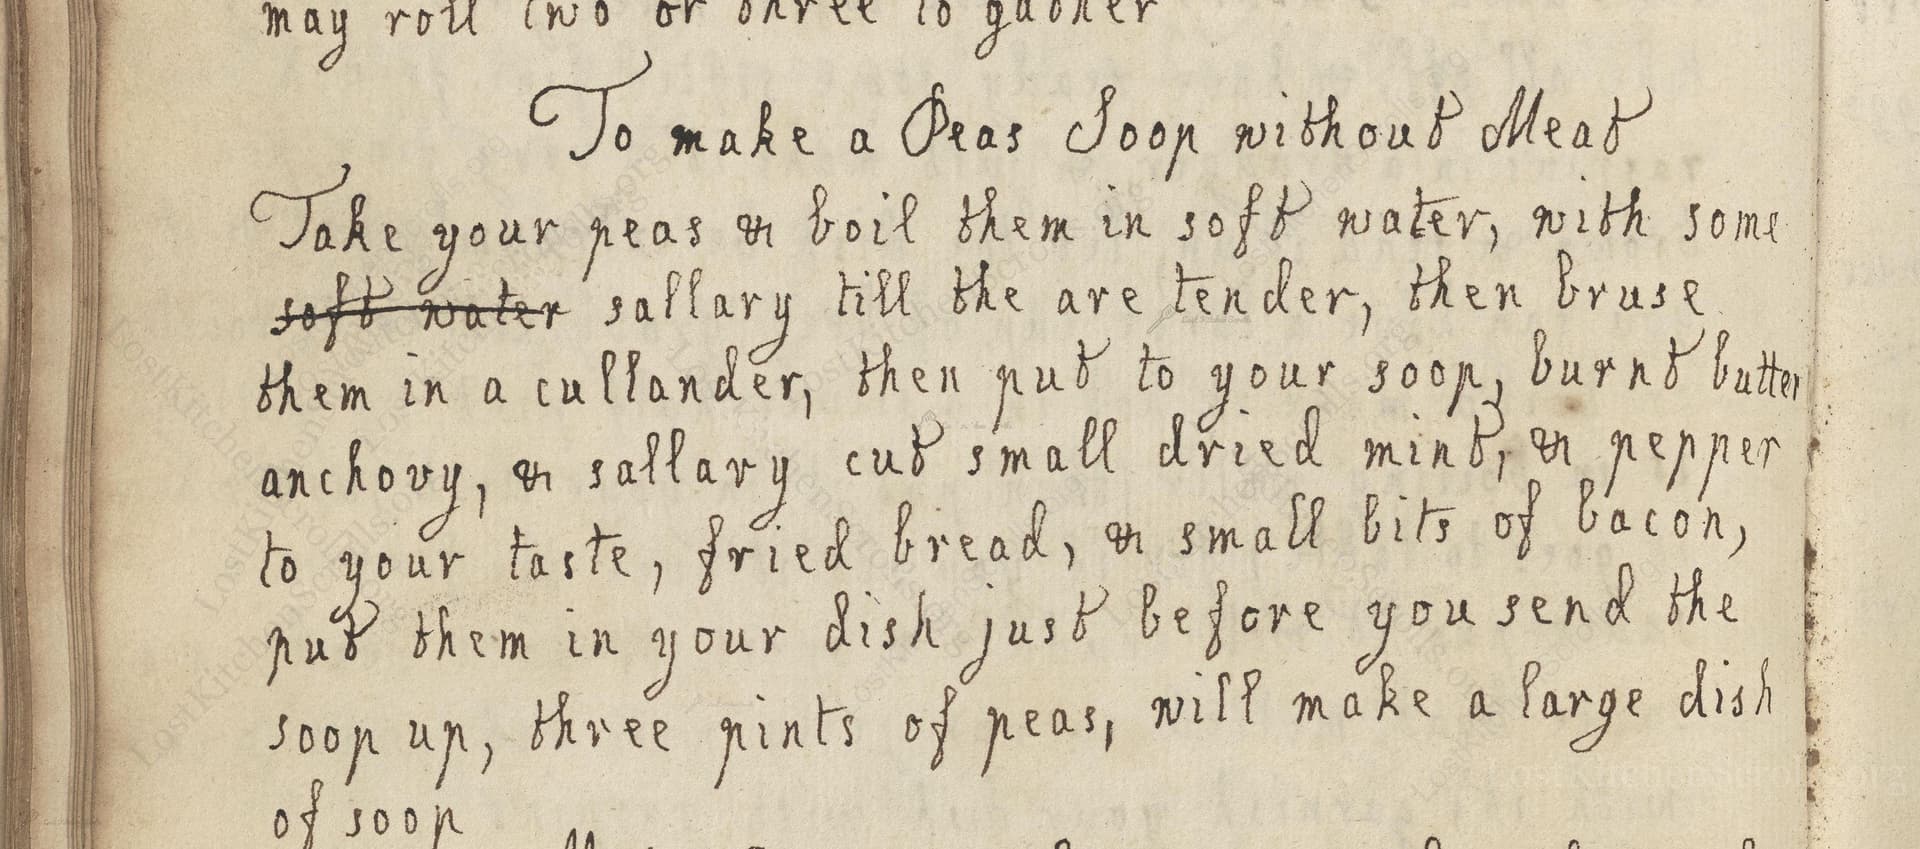 may roll two or three to gather
To make a Peas Soop without Meat
Take your peas & boil them in soft water, with some
soft water sallary till the are tender, then bruse
them in a cullander, then put to your soop, burnt butter
anchovy, & sallary cut small dried mint, & pepper
to your taste, fried bread, & small bits of bacon,
put them in your dish just before you send the
soop up, three pints of peas, will make a large dish
of soop